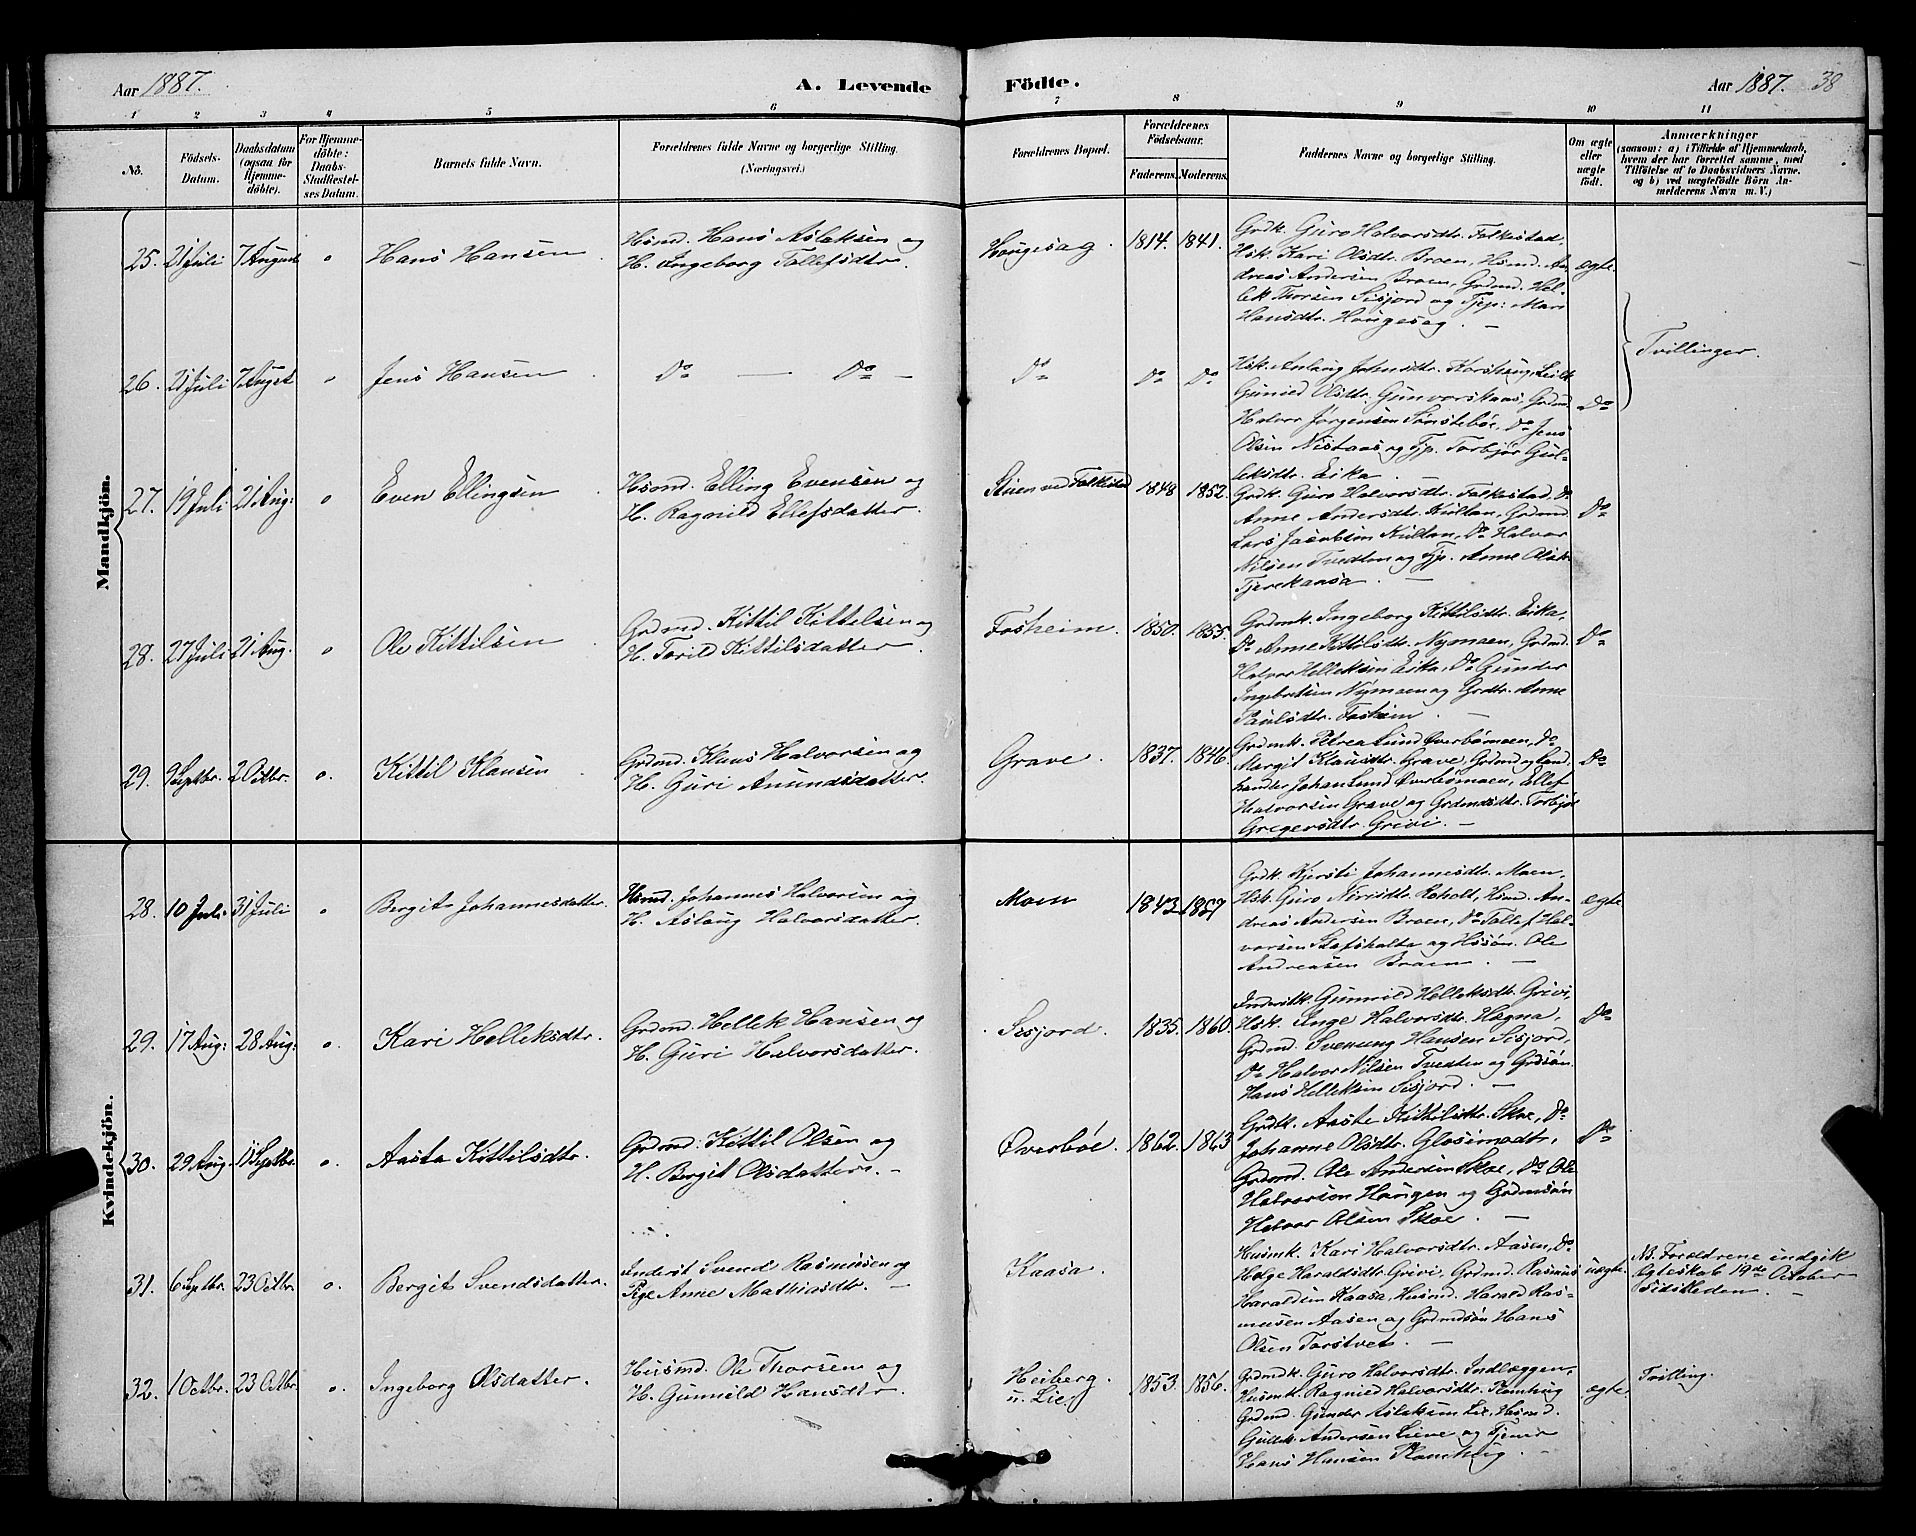 Aar 1887.
A. Levende
Födte.
Aar 1887. 38
1 2 3 4 5 6 7 8 9 10 11
No.
Födsels-
Datum.
Daabsdatum
(ogsaa for
Hjemme-
døbte).
For Hjemme-
döbte:
Daabs-
Stadfæstel-
ses Datum.
Barnets fulde Navn.
Forældrenes fulde Navne og borgerlige Stilling.
(Næringsvei.)
Forældrenes Bopæl.
Forældrenes
Födselsaar.
Faderens. Moderens.
Faddernes Navne og borgerlige Stilling.
Om ægte
eller
uægte
født.
Anmærkninger
(saasom: a) i Tilfælde af Hjemmedaab,
hvem der har forrettet samme, med
Tilføielse af to Daabsvidners Navne.
og b) ved uægtefödte Börn An-
melderens Navn m. V.)
Mandkjön.
25. 21 Juli 7 August o Hans Hansen
Hsmd. Hans Aslaksen og
H. Ingeborg Tollefsdtr.
Haugesag. 1814. 1841.
Grdk. Guro Halvorsdtr. Falkestad,
Hsk. Kari Olsdtr. Broen, Hsmd. An-
dreas Andersen Broen, Grdmd. Hel-
lek Thorsen Sisjord og Tjep: Mari
Hansdtr. Haugesag. —
ægte.
Tvillinger.
26. 21 Juli 7 Augst o Jens Hansen
Do — Do —
Do Do Do
Hsk. Aslaug Johnsdtr. Korshaug, Leilk
Gunild Olsdtr. Gunvorskaas, Grdmd.
Halvor Jørgensen Sønstebøe, Do Jens
Olsen Nistaas og Tjp. Torbjør Gul-
leksdtr. Eika —
Do
27. 19 Juli 21 Aug: o Even Ellingsen
Hsmd. Elling Evensen og
H. Ragnild Ellefsdatter.
Stuen ved Falkestad 1848 1852.
Grdk. Guro Halvorsdtr. Falkestad, Do
Anne Andersdtr. Kultan, Grdmd.
Lars Jacobsen Kultan, Do Halvor
Nilsen Tvedten og Tjp. Anne Olsdtr.
Tjerekaasa. —
Do
28. 27 Juli 21 Aug. o Ole Kittilsen
Grdmd. Kittil Kittelsen og
H. Toril Kittilsdatter.
Fosheim. 1850. 1855.
Grdmk. Ingeborg Kittilsdtr. Eika,
Do Anne Kittilsdtr. Nymoen, Grdmd.
Halvor Helleksen Eika, Do Gunder
Ingebretsen Nymoen og Grdtr. Anne
Paulsdtr. Fosheim. —
Do
29. 9 Septbr. 2 Octbr. o. Kittil Klausen
Grdmd. Klaus Halvorsen og
H. Guri Amundsdatter.
Grave. 1837. 1846.
Grdmk. Petrea Lund Øverbømoen, Do
Margit Klausdtr. Grave, Grdmd og Land-
handler Johan Lund Øverbømoen, Ellef
Halvorsen Grave og Grdmdsdtr. Torbjør
Gregersdtr. Grivi. —
Do
Kvindekjön.
28. 10 Juli 31 Juli o Bergit Johannesdatter.
Hsmd. Johannes Halvorsen og
H. Aslaug Halvorsdatter.
Moen 1843 1857
Grdk. Kjersti Johannesdtr. Moen,
Hsk. Guro Nirisdtr. Roholt, Hsmd. An-
dreas Andersen Broen, Do Tollef Hal-
vorsen Stafshalta og Hssøn. Ole
Andreasen Broen. —
ægte
29. 17 Aug: 28 Aug: o. Kari Helleksdtr.
Grdmd. Hellek Hansen og
H. Guri Halvorsdatter.
Sisjord. 1835. 1860.
Inderstk. Gunnild Helleksdtr. Grivi,
Hsk. Inge Halvorsdtr. Hagna,
Grdmd. Svenung Hansen Sisjord,
Do Halvor Nilsen Tvedten og Grdsøn
Hans Helleksen Sisjord. —
Do
30. 29 Aug. 11 Septbr. o. Aasta Kittilsdtr.
Grdmd. Kittil Olsen og
H. Bergit Olsdatter. —
Øverbøe. 1862. 1863
Grdk. Aaste Kittilsdtr. Skoe, Do
Johanne Olsdtr. Glosimodtr,
Grdmd. Ole Andersen Skoe, Do Ole
Halvorsen Haugen og Grdmssøn
Halvor Olsen Skoe. —
Do
31. 6 Septbr. 23 Octbr. o. Bergit Svendsdatter.
Inderst Svend Rasmusen og
Pige Anne Mathiasdtr. —
Kaasa.
Husmk. Kari Halvorsdtr. Aasen, Do
Helge Haraldsdtr. Grivi, Grdmd. Rasmus
Haraldsen Kaasa, Husmd. Harald Ras-
musen Aasen og Grdmdsøn Hans
Olsen Torstvet. —
uægte.
NB. Forældrene indgik
Ægteskab 19de October
sidstleden. —
32. 1 Octbr. 23 Octbr. o. Ingeborg Olsdatter.
Husmd. Ole Thorsen og
H. Gunnild Hansdtr.
Heiberg
u. Lie. 1853. 1856.
Grdmdk. Guro Halvorsdtr. Indlæggen,
Husmk. Ragnild Halvorsdtr. Plomhug
Grdmd. Gunder Aslaksen Lie, Hsmd.
Gullek Andersen Lieve og Tjener
Hans Hansen Plomhug. —
ægte.
Tvilling.